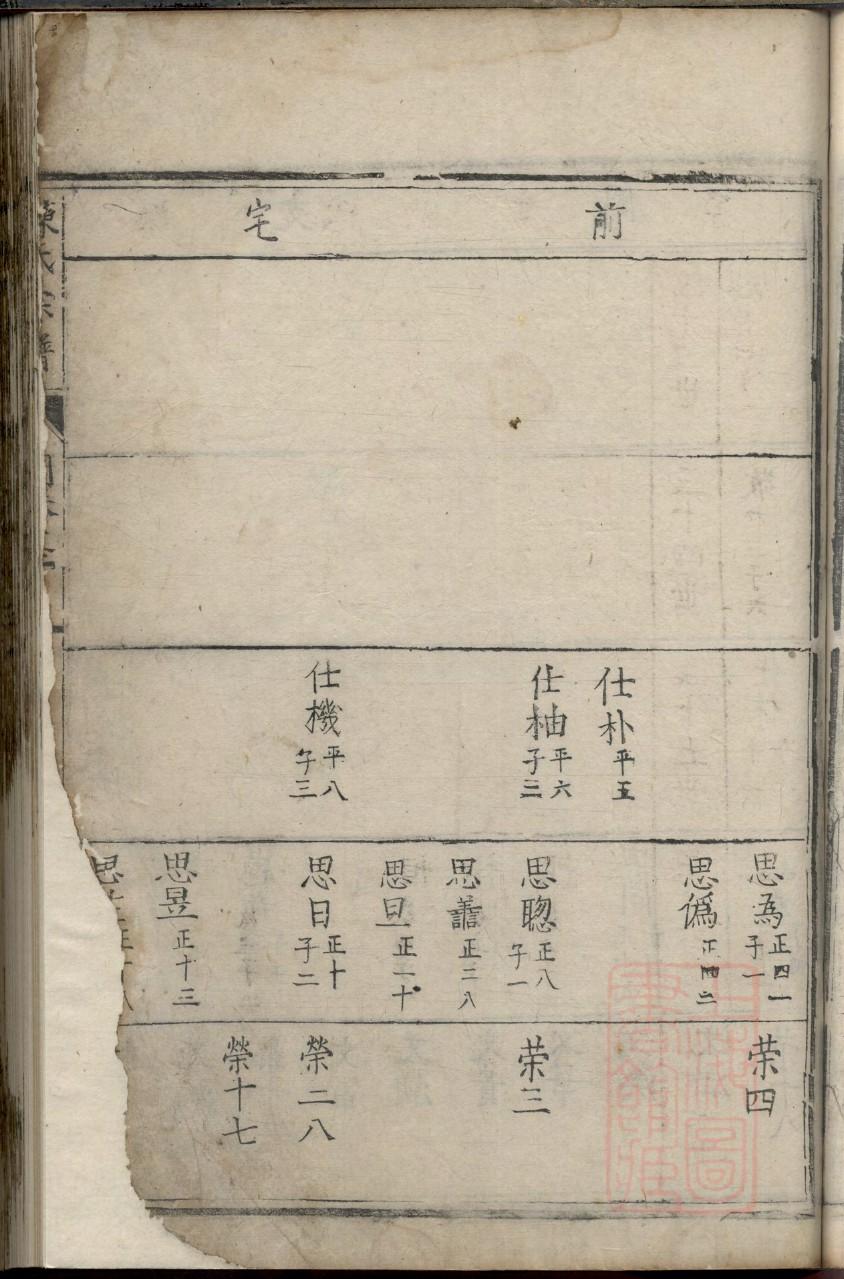 前
宅
仕朴平五
仕柚平六子三
仕機平八子三
思為正四一子一
思僞正四二
思聰正八子一
思譱正二八
思旦正二十
思日正十子二
思昱正十三
思
荣四
荣三
榮二八
榮十七
氏宗譜